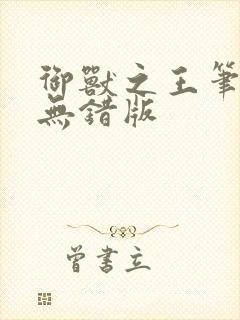 御獸之王筆
無錯版
曾書立